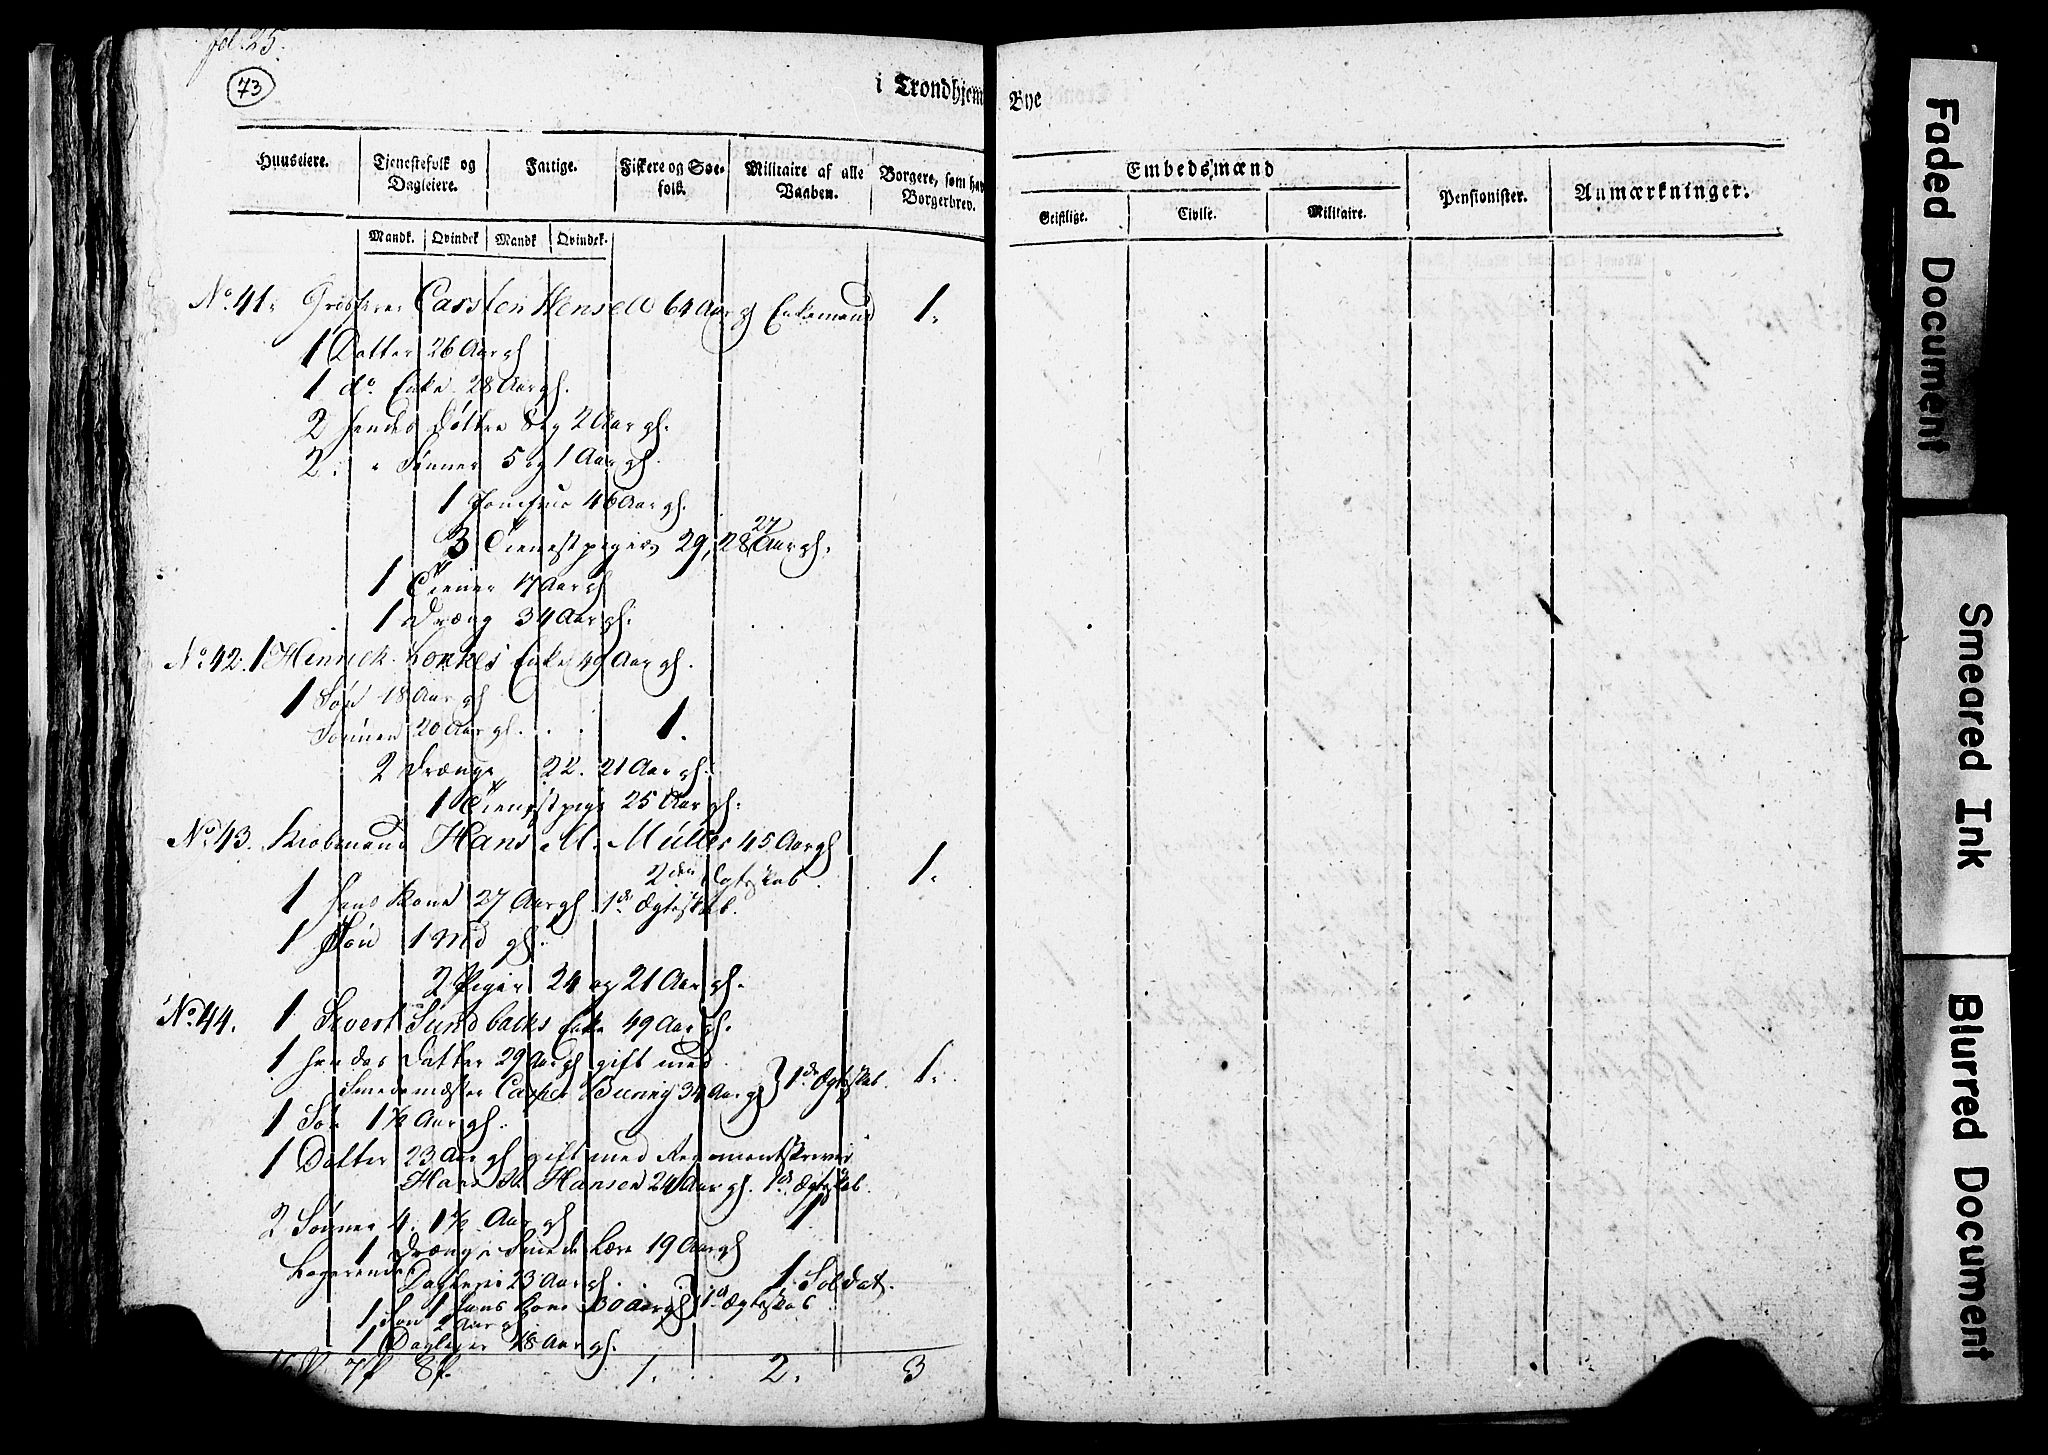 fol. 25.
73
i Trondhjem Bye
Huuseiere. Tienestefolk og Dagleiere. Fattige. Fiskere og Søefolk. Militaire af alle Vaaben. Borgere, som have Borgerbrev. Embedsmænd Pensionister. Anmærkninger.
Geistlige. Civile. Militaire.
Mandk. Qvindek Mandk Qvindek.
No. 41. Carsten Hensell 64 Aar gl Enkemand 1.
1 Datter 26 Aar gl
1 do. Enke 28 Aar gl.
2 hendes Døttre 8 og 2 Aar gl.
2. " Sønner 5 og 1 Aar gl.
1 Jomfrue 46 Aar gl.
27
3 Tienestpiger 29, 28 Aar gl.
1 Tiener 17 Aar gl
1 Dræng 34 Aar gl.
No. 42. 1 Hinrick Enke 49 Aar gl.
1 Søn 18 Aar gl
20 Aar gl. . . . 1.
2 Drænge 22. 21 Aar gl.
1 Tienestpige 25 Aar gl.
No. 43. Kiøbmand Hans M. Müller 45 Aar gl
2den Ægteskab. 1.
1 hans Kone 27 Aar gl. 1de Ægteskab.
1 Søn 1 Md gl.
2 Piger 24 og 21 Aar gl.
No. 44. 1 Sivert Sundbacks Enke 49 Aar gl.
1 hendes Datter 29 Aar gl gift med
Smedemester Casper Buuny 34 Aar gl } 1de Ægteskab. 1.
1 Søn 1½ Aar gl.
1 Datter 23 Aar gl gift med Regimentskriver
Hans Hansen 24 Aar gl. 1de Ægteskab.
2 Sønner 4. 1½ Aar gl 1
1 Dræng i Smede Lære 19 Aar gl
Logerende 23 Aar gl. 1. Soldat.
1 hans Kone 30 Aar gl } 1de Ægteskab
1 Søn 2 Aar gl
1 Dagleier 18 Aar gl.
7 8 1. 2. 3
Faded Document
Smeared Ink
Blurred Document